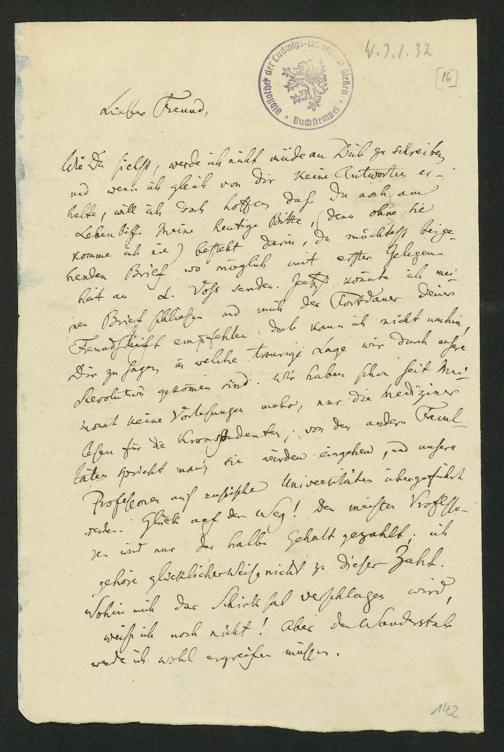 W. I. 1. 32
[16]
Bibliothek der Ludwigs-Universität Gießen
Buchstempel
Lieber Freund,
Wie Du siehst, werde ich nicht müde an Dich zu schreiben
und wenn ich gleich von Dir keine Antworten er-
halte, will ich doch hoffen daß Du noch am
Leben bist. Meine heutige Bitte, (denn ohne sie
komme ich nie) besteht darin, Du möchtest beige-
henden Brief wo möglich mit erster Gelegen-
heit an d. Voss senden. Jetzt könnte ich mei-
nen Brief schließen und mich der Fortdauer Deiner
Freundschaft empfehlen; doch kann ich nicht umhin,
Dir zu sagen in welche traurige Lage wir durch unsere
Revolution gekommen sind. Wir haben schon seit
monat keine Vorlesungen mehr, nur die Mediziner
lesen für die Kronstudenten; von den andern Facul-
täten spricht man, sie würden eingehen, und unsere
Professoren auf russische Universitäten übergeführt
werden. Glück auf den Weg! Den meisten Professo-
ren wird nur der halbe Gehalt gezahlt; ich
gehöre glücklicherweise nicht zu dieser Zahl.
Wohin mich das Schicksal verschlagen wird,
weiß ich noch nicht! Aber den Wanderstab
werde ich wohl ergreifen müssen.
142